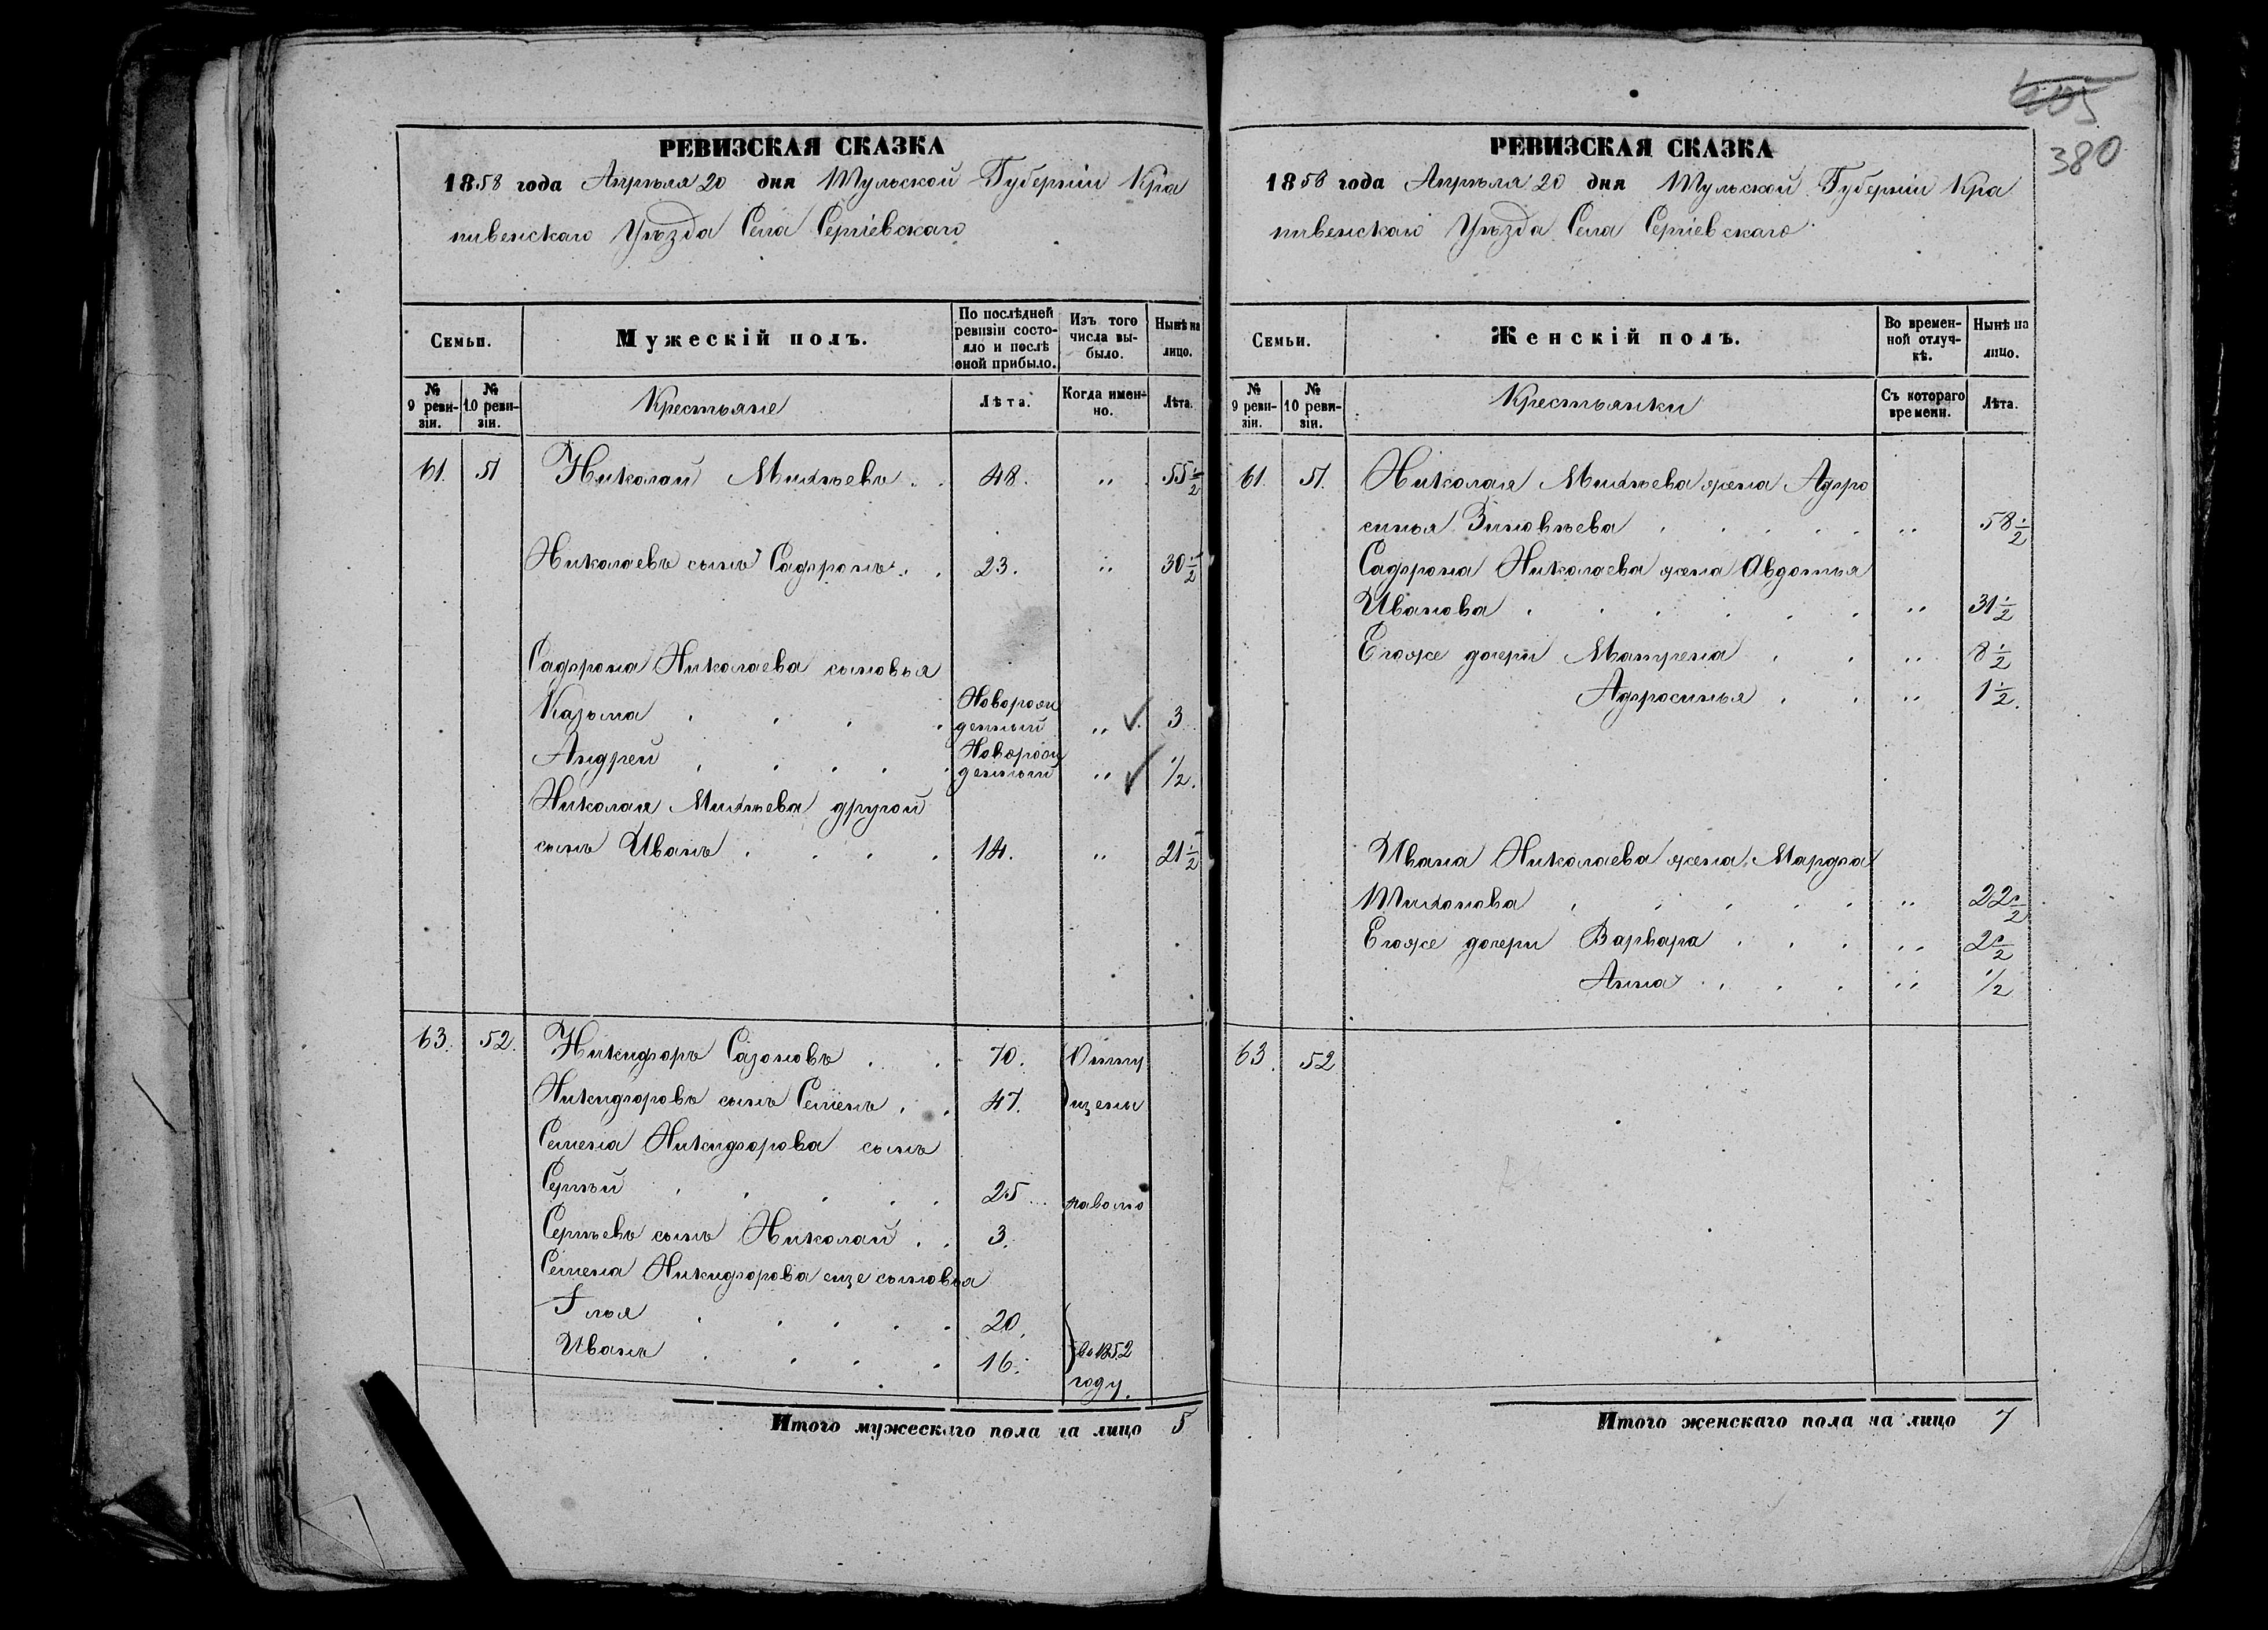 РЕВИЗСКАЯ СКАЗКА
1858 года Апрѣля 20 дня Тульской Губерніи Кра
пивенскаго Уѣзда Села Сергіевскаго
Семьи.
Мужескій полъ.
По послѣдней ревизіи состояло и послѣ оной прибыло.
Изъ того числа выбыло.
Нынѣ на лицо.
№ 9 ревизіи.
№ 10 ревизіи.
Крестьяне
Лѣта.
Когда именно.
Лѣта.
61. 51 Николай Михѣевъ . . 48. „ 55 1/2
Николаевъ сынъ Сафронъ . . 23. „ 30 1/2
Сафрона Николаева сыновья
Казьма . . . . Новорож
денный „ 3
Андрей . . . . . Новорож
денный „ 1/2.
Николая Михѣева другой
сынъ Иванъ . . . . 14. „ 21 1/2
63. 52. Никифоръ Сазоновъ . . 70. Отпу
Никифоровъ сынъ Семенъ . . 47. щены
Семена Никифорова сынъ
Сергѣй . . . . . 25 наволю
Сергѣевъ сынъ Николай . . 3.
Семена Никифорова еще сыновья
Илья . . . . . 20.
Иванъ . . . . 16. въ 1852
году.
Итого мужескаго пола на лицо 5
605
380
РЕВИЗСКАЯ СКАЗКА
1858 года Апрѣля 20 дня Тульской Губерніи Кра
пивенскаго Уѣзда Села Сергіевскаго
Семьи.
Женскій полъ.
Во временной отлучкѣ.
Нынѣ на лицо.
№ 9 ревизіи.
№ 10 ревизіи.
Крестьянки
Съ котораго времени.
Лѣта.
61. 51. Николая Михѣева жена Афро
синья Зиновьева . . . . . „ 58 1/2
Сафрона Николаева жена Авдотья
Иванова . . . . . . „ 31 1/2
Егоже дочери Матрена . . „ 8 1/2
Афросинья . . „ 1 1/2.
Ивана Николаева жена Марфа
Тихонова . . . . . „ 22 1/2
Егоже дочери Варвара . . . „ 2 1/2
Анна . . . „ 1/2
63. 52
Итого женскаго пола на лицо 7